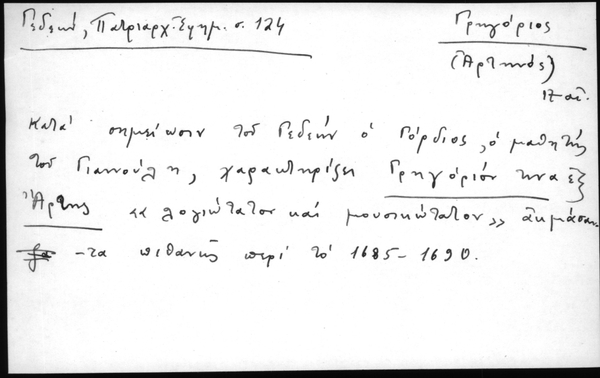 Γεδεών, Πατριαρχ. Εφημ. σ. 124
Γρηγόριος
(Ἀρτηνός)
17 αἰ.
Κατά σημείωσιν τοῦ Γεδεών ὁ Γόρδιος, ὁ μαθητής
τοῦ Γιαννούλη, χαρακτηρίζει Γρηγόριόν τινα ἐξ
Ἄρτης «λογιώτατον καί μουσικώτατον» ἀκμάσαν
-τα πιθανῶς περί τό 1685-1690.